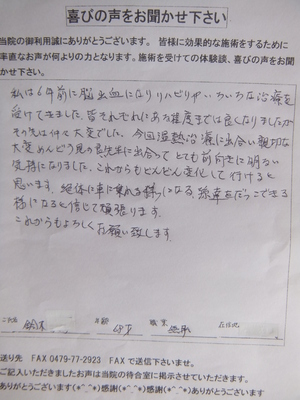 喜びの声をお聞かせ下さい
当院の御利用誠にありがとうございます。皆様に効果的な施術をするために
率直なお声が何よりの力となります。施術を受けての体験談、喜びの声をお聞
かせ下さい。
私は6年前に脳出血になりリハビリや、いろいろな治療を
受けて来ました。皆それぞれにある程度までは良くなりましたが
その先は仲々大変でした。今回温熱治療に出合い親切な
大変めんどう見の良い先生に出会って とても前向きに明るい
気持になりました。これからもどんどん変化して行けると
思います。絶体に車に乗れる様になる、孫をだっこできる
様になると信じて頑張ります。
これからもよろしくお願い致します。
鈴木 年齢 職業 在住地
送り先 FAX 0479-77-2923 FAX で送信下さいませ。
ご記入いただきましたお声は当院の待合室に掲示させていただきます。
ありがとうございます(*^_^*)感謝(*^_^*)感謝(*^_^*)ありがとうございます